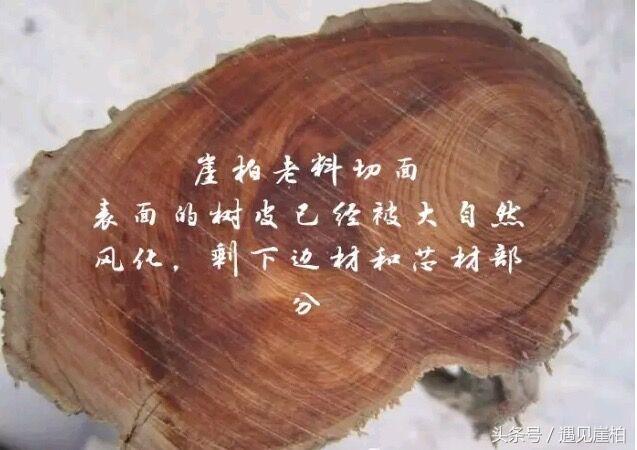 崖柏老料切面
表面的树皮已经被大自然
风化，剩下边材和芯材部
分
头条号 / 遇见崖柏